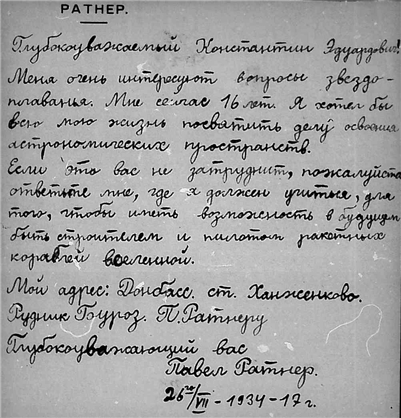 РАТНЕР.
Глубокоуважаемый Константин Эдуардович!
Меня очень интересуют вопросы звездо-
плаванья. Мне сейчас 16 лет. Я хотел бы
всю мою жизнь посвятить делу освоения
астрономических пространств.
Если это вас не затруднит, пожалуйста
ответьте мне, где я должен учиться, для
того, чтобы иметь возможность в будущем
быть строителем и пилотом ракетных
кораблей вселенной.
Мой адрес: Донбасс. ст. Ханженково.
Рудник Буроз. П. Ратнеру
Глубокоуважающий вас
Павел Ратнер.
26го/VII - 1934 - 17 г.